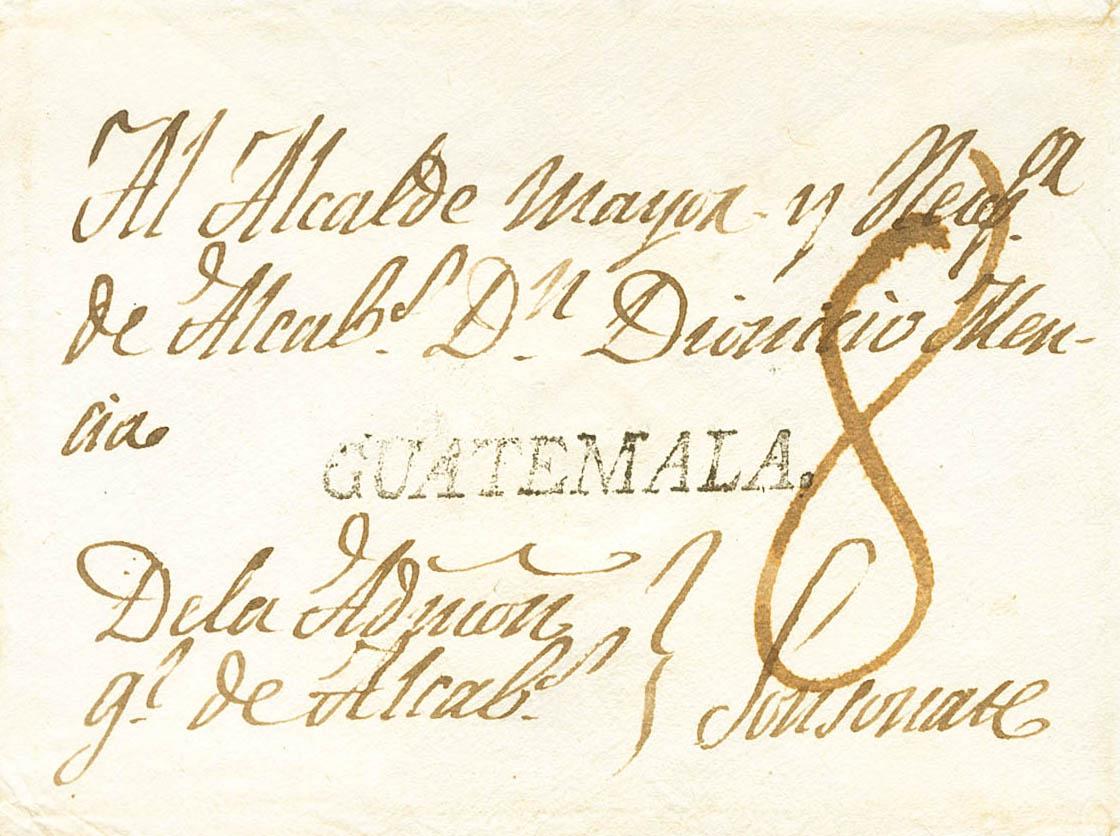 Al Alcalde Mayor y Recep.or
de Alcab.s D.n Dionicio Men-
cia
GUATEMALA.
8
De la Admon
g.l de Alcab.s
Sonsonate